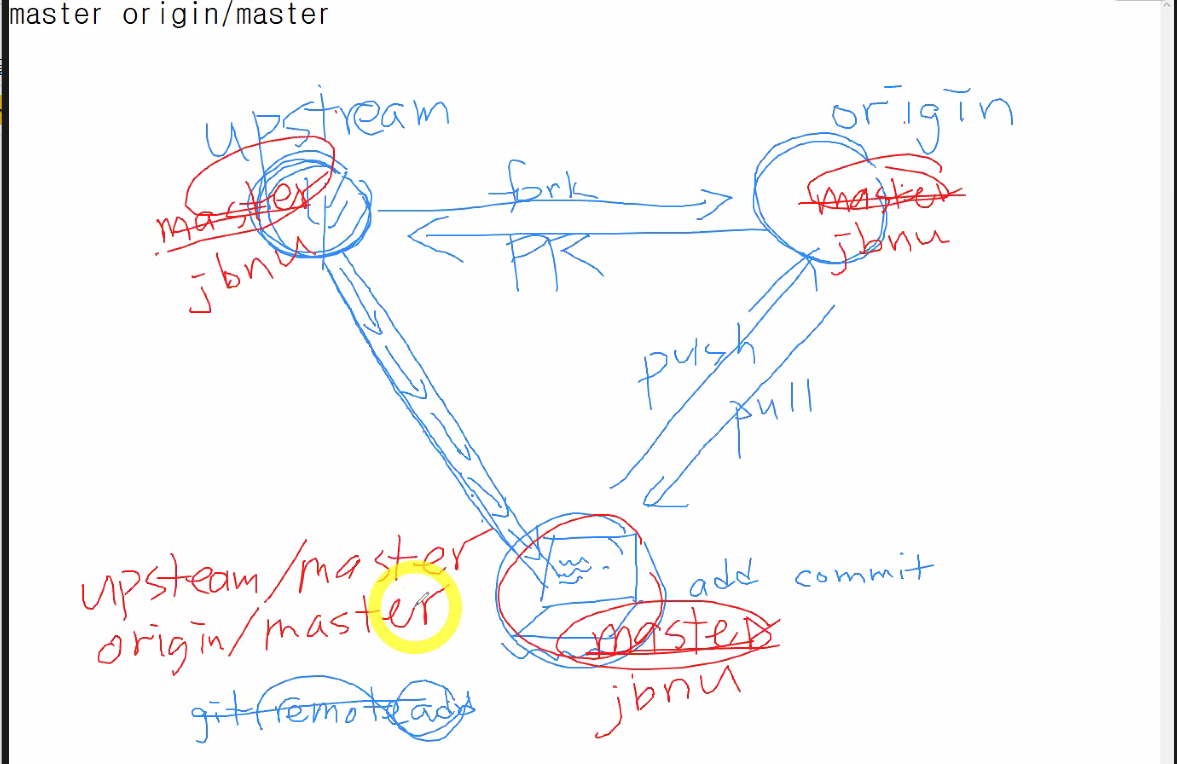 master origin/master
upstream
origin
master
jbnu
fork
PR
master
jbnu
push
pull
upsteam/master
origin/master
add commit
master
jbnu
git remote add